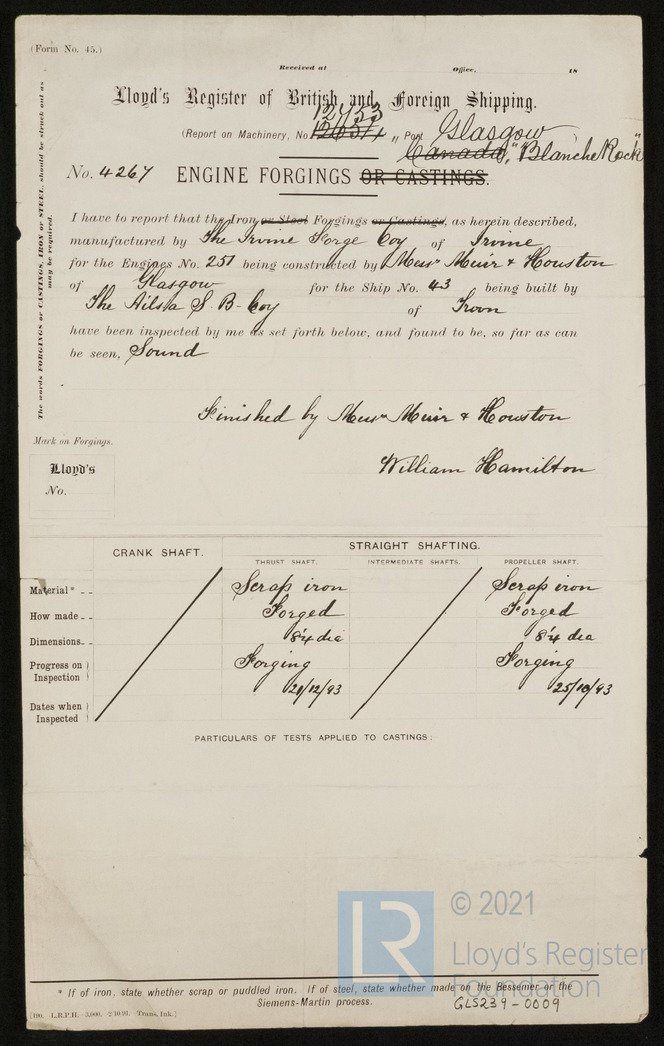 (Form No. 45.)
Received at Office, 18
Lloyd's Register of British and Foreign Shipping.
12453
(Report on Machinery, No. „ Port Glasgow
Canada, "Blanche Rock"
No. 4267 ENGINE FORGINGS OR CASTINGS.
I have to report that the Iron or Steel Forgings or Castings, as herein described,
manufactured by The Irvine Forge Coy of Irvine
for the Engines No. 251 being constructed by Messrs Muir & Houston
of Glasgow for the Ship No. 43 being built by
The Ailsa S. B. Coy of Troon
have been inspected by me as set forth below, and found to be, so far as can
be seen, Sound
Finished by Messrs Muir & Houston
William Hamilton
The words FORGINGS or CASTINGS, IRON or STEEL, should be struck out as
may be required.
Mark on Forgings.
Lloyd's
No.
CRANK SHAFT. STRAIGHT SHAFTING.
THRUST SHAFT. INTERMEDIATE SHAFTS. PROPELLER SHAFT.
Material* Scrap iron Scrap iron
How made Forged Forged
Dimensions 8¼ dia 8¼ dia
Progress on Inspection Forging Forging
Dates when Inspected 21/12/93 25/10/93
PARTICULARS OF TESTS APPLIED TO CASTINGS:
© 2021
LR
Lloyd's Register
Foundation
* If of iron, state whether scrap or puddled iron. If of steel, state whether made on the Bessemer or the
Siemens-Martin process.
GLS239-0009
L.R.P.H.
Trans, Ink.]